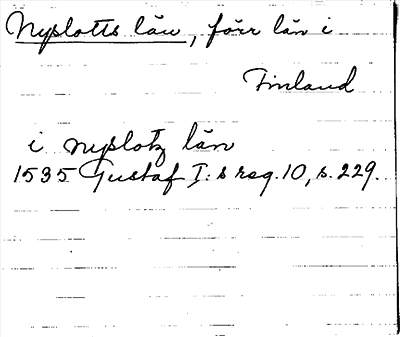 Nyslotts län, förr län i
Finland
i nyslotz län
1535 Gustaf I:s reg. 10, s. 229.